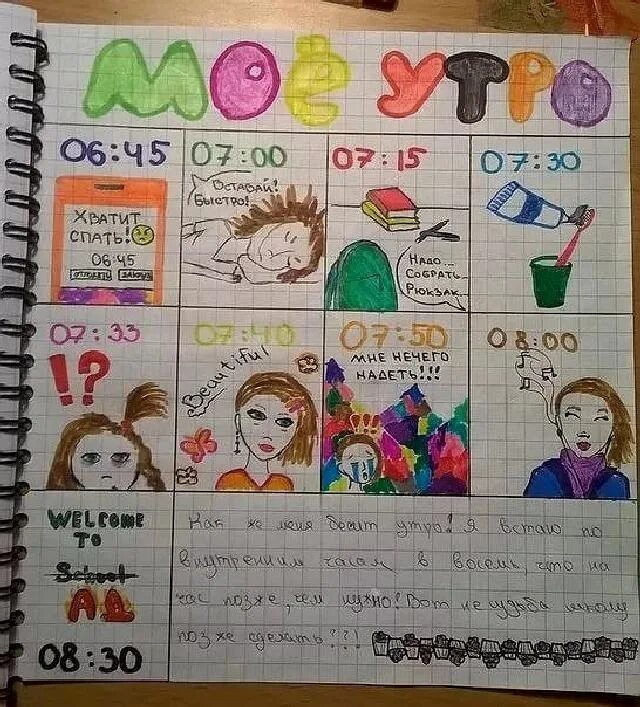 МОЁ УТРО
06:45
ХВАТИТ
СПАТЬ!
06:45
ОТЛОЖИТЬ
07:00
ВСТАВАЙ!
БЫСТРО!
07:15
НАДО...
СОБРАТЬ
РЮКЗАК...
07:30
07:33
!?
07:40
Beautiful
07:50
МНЕ НЕЧЕГО
НАДЕТЬ!!!
!!!
08:00
WELCOME
TO
School
АД
08:30
Как же меня бесит утро! Я встаю по
внутренним часам в восемь, что на
час позже, чем нужно! Вот не судьба школу
позже сделать?!?!